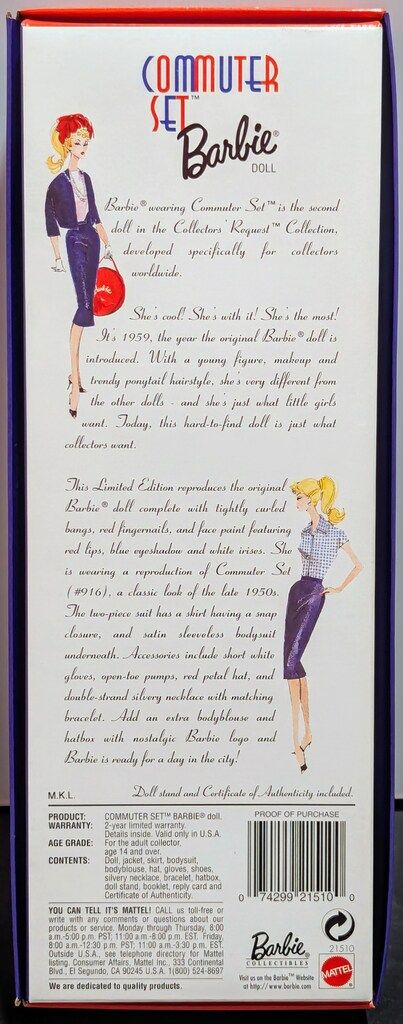 COMMUTER
SET™
Barbie®
DOLL
Barbie® wearing Commuter Set™ is the second
doll in the Collectors' Request™ Collection,
developed specifically for collectors
worldwide.
She's cool! She's with it! She's the most!
It's 1959, the year the original Barbie® doll is
introduced. With a young figure, makeup and
trendy ponytail hairstyle, she's very different from
the other dolls - and she's just what little girls
want. Today, this hard-to-find doll is just what
collectors want.
This Limited Edition reproduces the original
Barbie® doll complete with tightly curled
bangs, red fingernails, and face paint featuring
red lips, blue eyeshadow and white irises. She
is wearing a reproduction of Commuter Set
(#916), a classic look of the late 1950s.
The two-piece suit has a skirt having a snap
closure, and satin sleeveless bodysuit
underneath. Accessories include short white
gloves, open-toe pumps, red petal hat, and
double-strand silvery necklace with matching
bracelet. Add an extra bodyblouse and
hatbox with nostalgic Barbie logo and
Barbie is ready for a day in the city!
M.K.L.
Doll stand and Certificate of Authenticity included.
PRODUCT: COMMUTER SET™ BARBIE® doll.
WARRANTY: 2-year limited warranty.
Details inside. Valid only in U.S.A.
AGE GRADE: For the adult collector,
age 14 and over.
CONTENTS: Doll, jacket, skirt, bodysuit,
bodyblouse, hat, gloves, shoes,
silvery necklace, bracelet, hatbox,
doll stand, booklet, reply card and
Certificate of Authenticity.
YOU CAN TELL IT'S MATTEL! CALL us toll-free or
write with any comments or questions about our
products or service. Monday through Thursday, 8:00
a.m.-5:00 p.m. PST; 11:00 a.m.-8:00 p.m. EST. Friday,
8:00 a.m.-12:30 p.m. PST; 11:00 a.m.-3:30 p.m. EST.
Outside U.S.A., see telephone directory for Mattel
listing. Consumer Affairs, Mattel Inc., 333 Continental
Blvd., El Segundo, CA 90245 U.S.A. 1(800) 524-8697
We are dedicated to quality products.
PROOF OF PURCHASE
0 74299 21510 0
21510
Barbie®
COLLECTIBLES
Visit us on the Barbie™ Website
at http://www.barbie.com
MATTEL